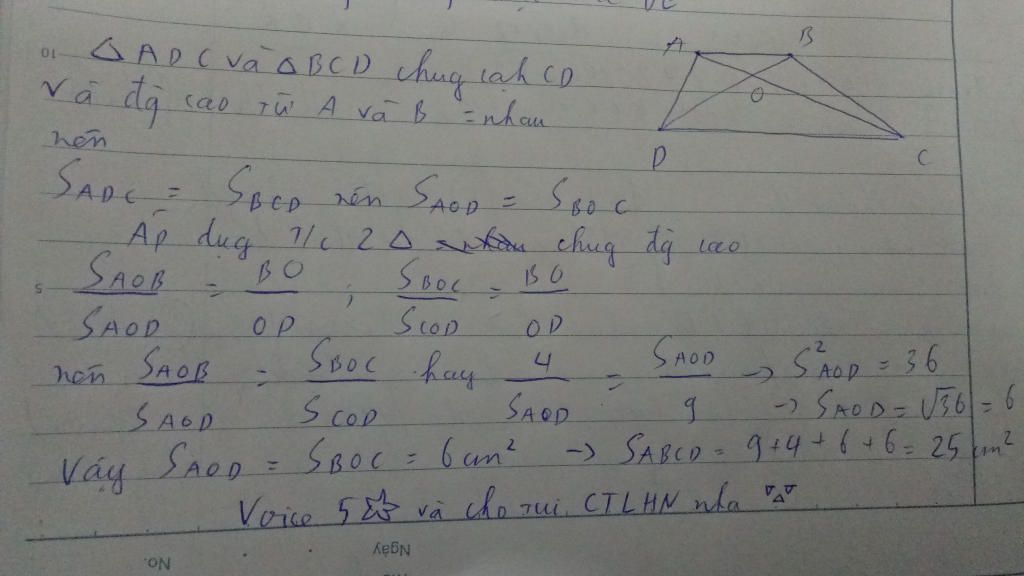 △ADC và △BCD chug cạh CD
Và đg̀ cao từ A và B = nhau
nên
S_ADC = S_BCD nên S_AOD = S_BOC
Áp dụg T/c 2 △ chug đg̀ cao
S_AOB / S_AOD = BO / OD ; S_BOC / S_COD = BO / OD
nên S_AOB / S_AOD = S_BOC / S_COD hay 4 / S_AOD = S_AOD / 9 → S²_AOD = 36
→ S_AOD = √36 = 6
Vậy S_AOD = S_BOC = 6cm² → S_ABCD = 9+4+6+6 = 25 cm²
Voice 5 ☆ và cho tui CTLHN nha
A
B
O
D
C
10
5
Ngày
No.